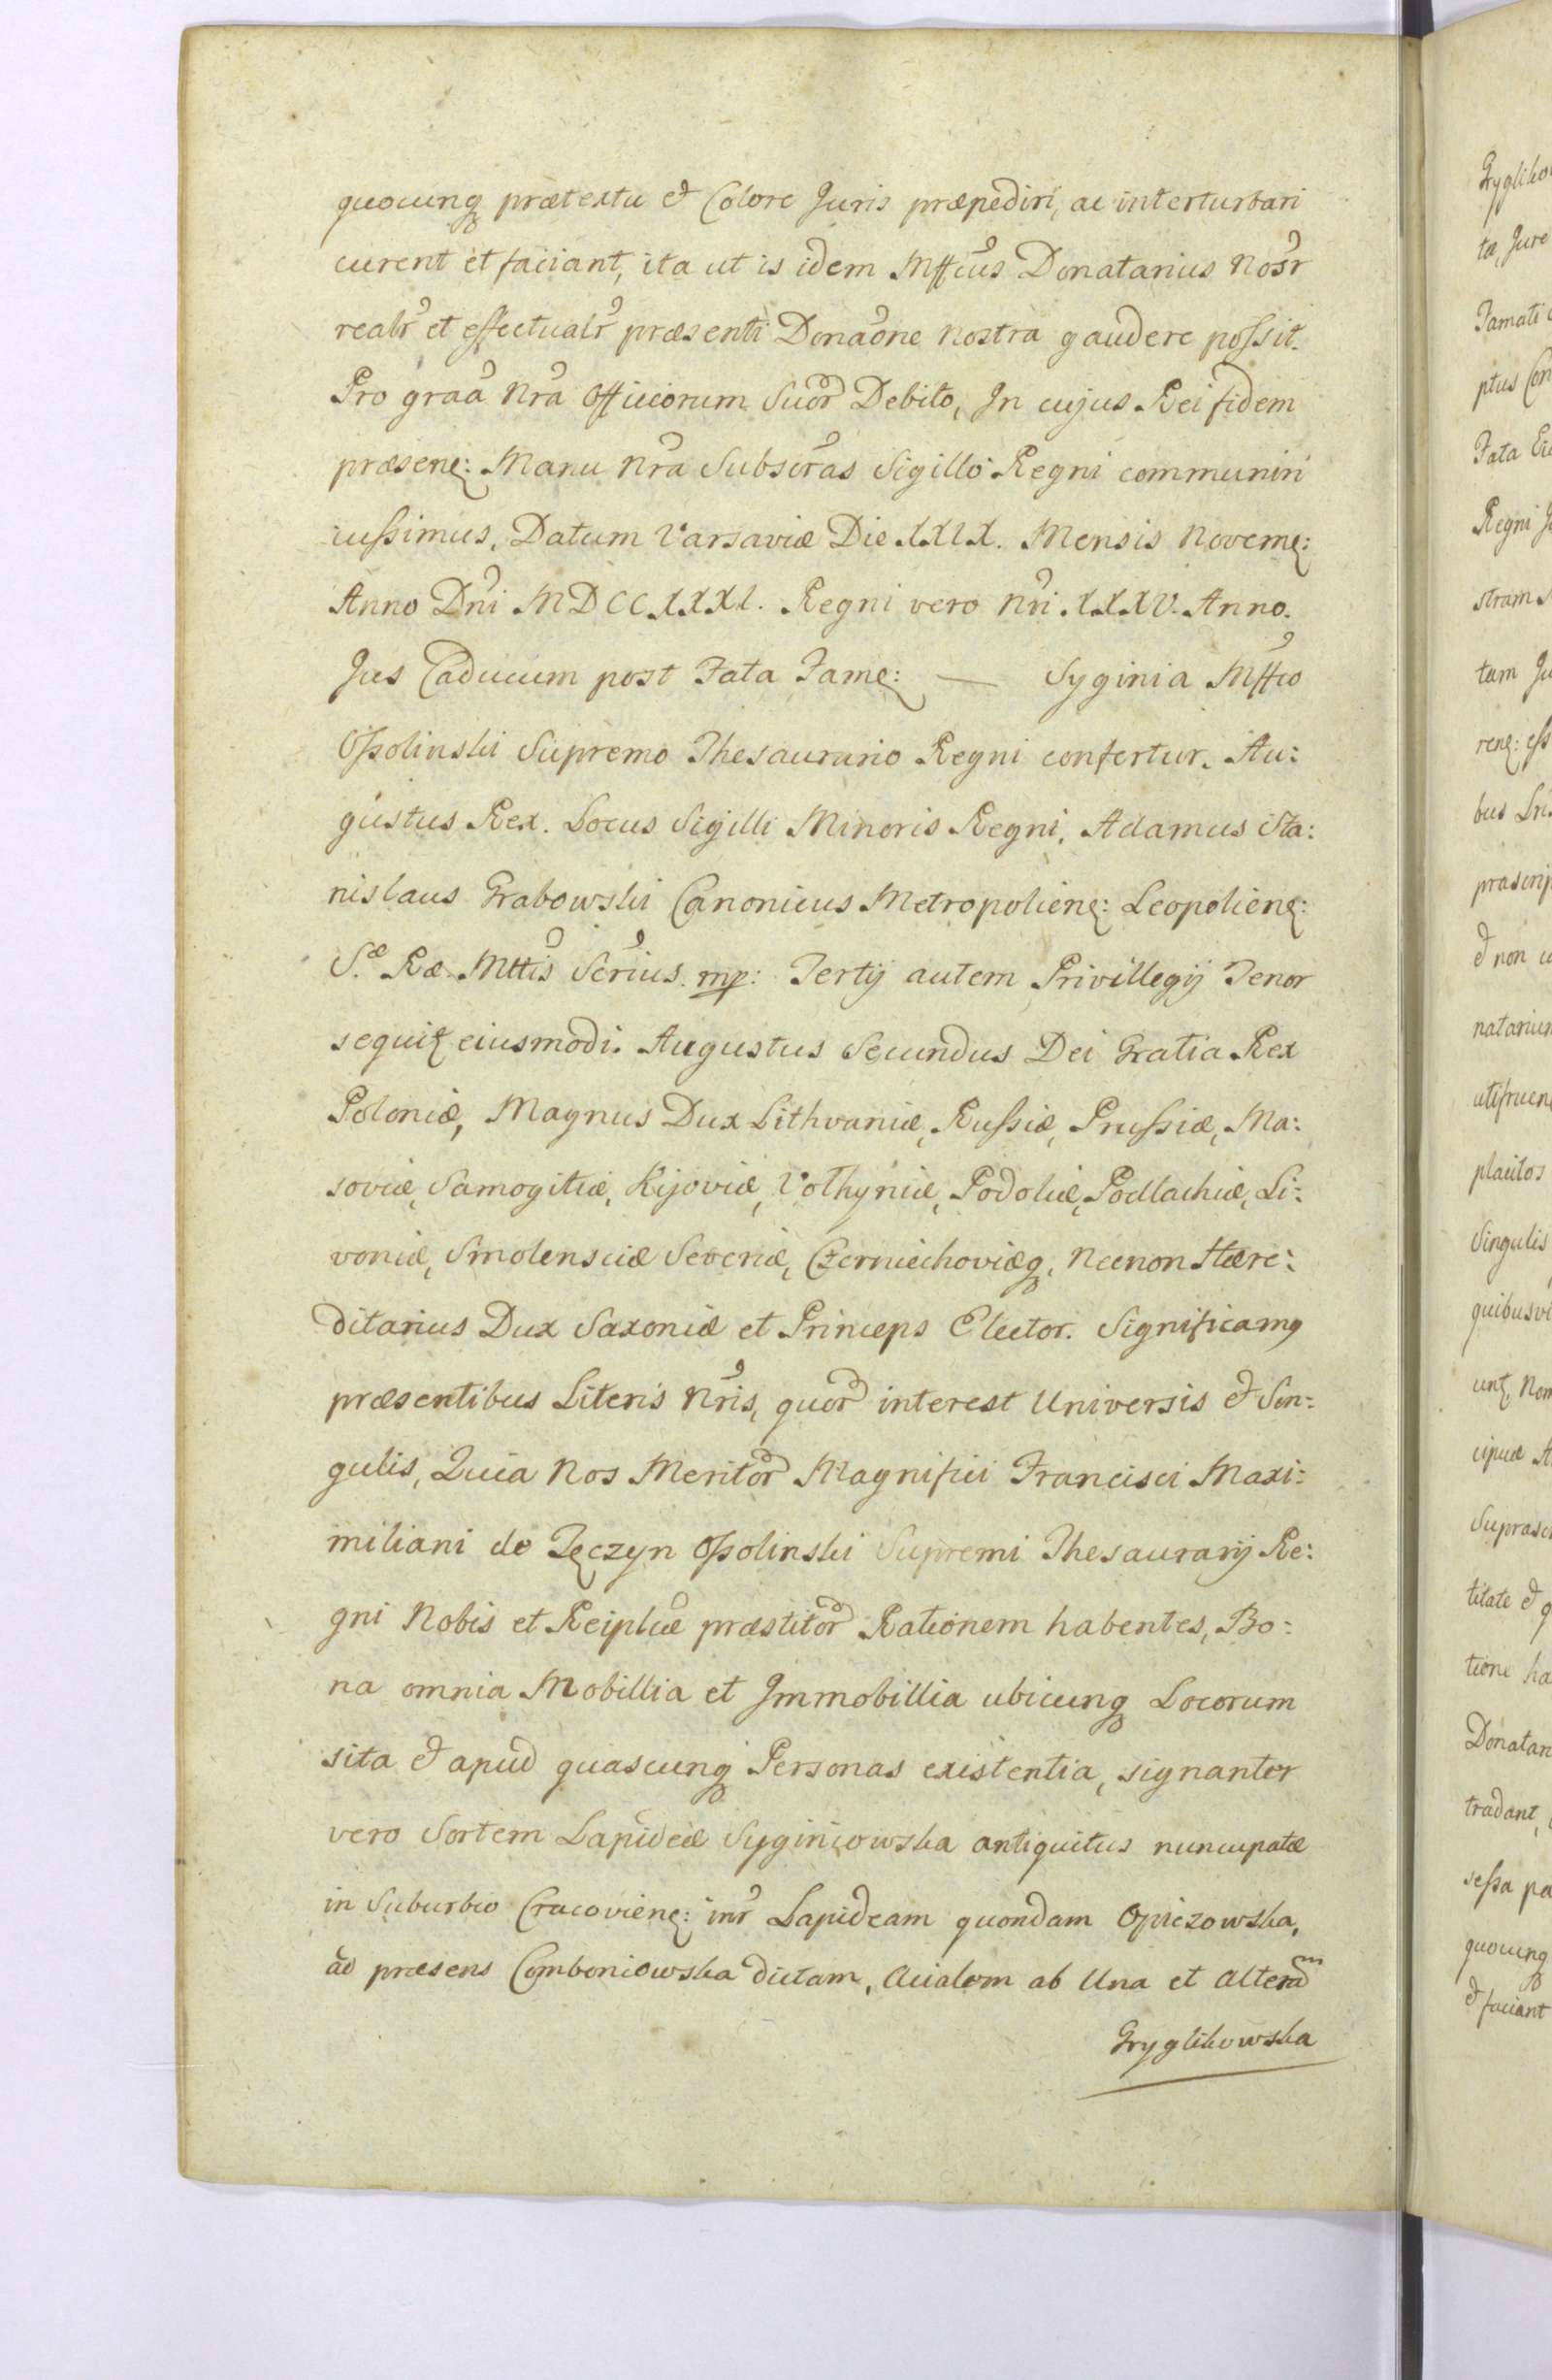 quocunq prætextu et Colore Juris præpediri, ac interturbari
curent et faciant, ita ut is idem Mffcus Donatarius Nosr
realr et effectualr præsenti Donaone Nostra gaudere possit.
Pro graa Nra Officiorum Suor Debito, In cujus Rei fidem
præsen: Manu Nra Subscras Sigillo Regni communiri
iussimus, Datum Varsaviæ Die XXIX. Mensis Novem:
Anno Dni MDCCXXXI. Regni vero Nri XXXV. Anno.
Jus Caducum post Fata Fam: — Syginia Mffco
Ossolinski Supremo Thesaurario Regni confertur. Au:
gustus Rex. Locus Sigilli Minoris Regni. Adamus Sta:
nislaus Grabowski Canonicus Metropolien: Leopolien:
S.æ Ræ Mttis Scrius. mp: Tertij autem Privillegij Tenor
sequit eiusmodi. Augustus Secundus Dei Gratia Rex
Poloniæ, Magnus Dux Lithvaniæ, Russiæ, Prussiæ, Ma:
soviæ, Samogitiæ, Kijoviæ, Volhyniæ, Podoliæ, Podlachiæ, Li:
voniæ, Smolensciæ Severiæ, Czerniechoviæq, Necnon Hære:
ditarius Dux Saxoniæ et Princeps Elector. Significamq
præsentibus Literis Nris, quor interest Universis et Sin:
gulis, Quia Nos Meritor Magnifici Francisci Maxi:
miliani de Tęczyn Ossolinski Supremi Thesaurarij Re:
gni Nobis et Reiplcæ præstitor Rationem habentes, Bo:
na omnia Mobillia et Immobillia ubicunq Locorum
sita et apud quascunq Personas existentia, signanter
vero Sortem Lapideæ Syginiowska antiquitus nuncupatæ
in Suburbio Cracovien: inr Lapideam quondam Opiezowska,
ad præsens Comboniowska dictam, Acialem ab Una et Alteram
Gryglikowska